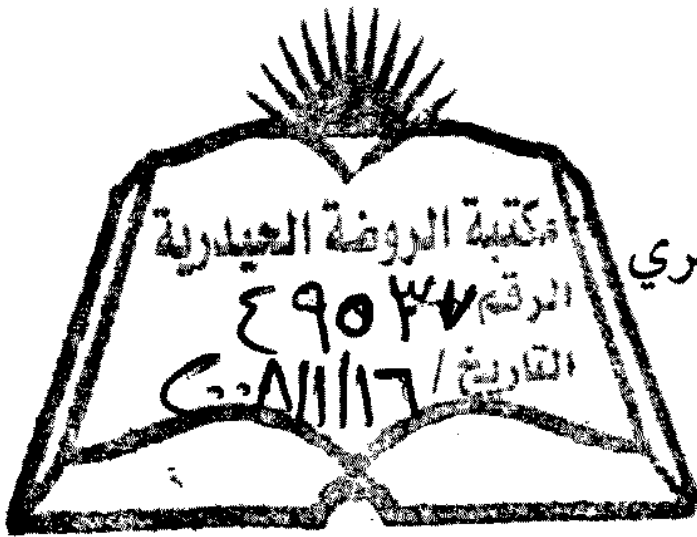 مكتبة الروضة الحيدرية
الرقم ٤٩٥٣٧
التاريخ / ٢٠٠٨/١/١٦
ري